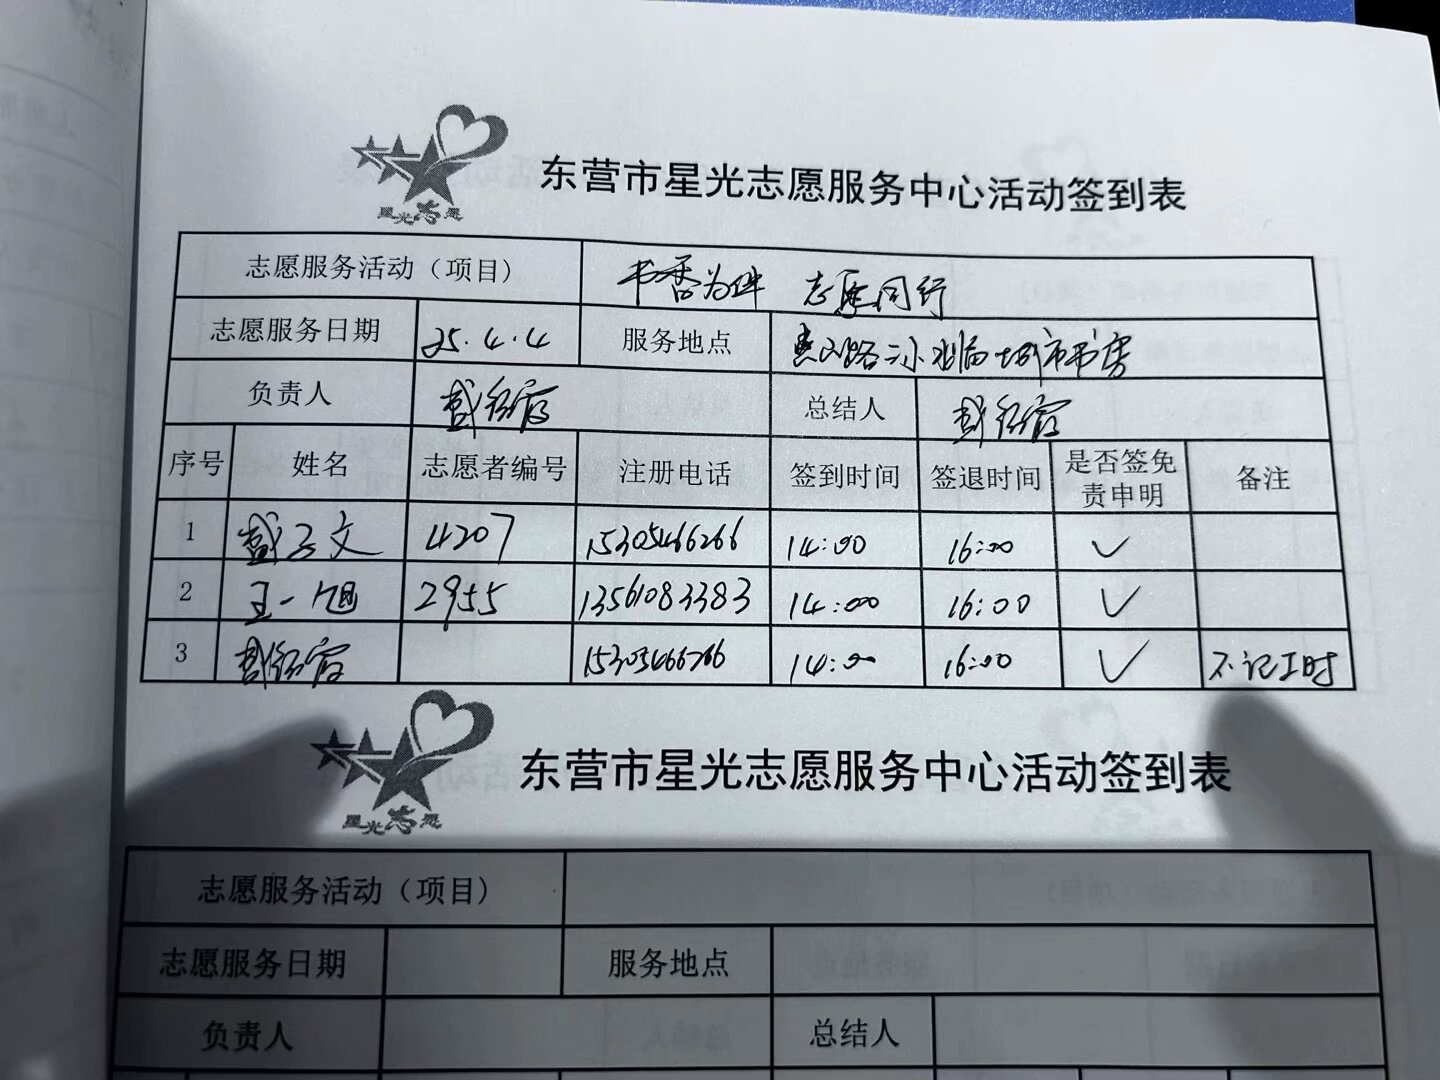 星光志愿
东营市星光志愿服务中心活动签到表
志愿服务活动（项目） 书香为伴 志愿同行
志愿服务日期 25.4.4 服务地点 路二小 临 城市书房
负责人 总结人
序号 姓名 志愿者编号 注册电话 签到时间 签退时间 是否签免责申明 备注
1 文 4207 15305466266 14:00 16:00 ✓
2 王一旭 2955 13561083383 14:00 16:00 ✓
3 15305466266 14:00 16:00 ✓ 不记工时
星光志愿
东营市星光志愿服务中心活动签到表
志愿服务活动（项目）
志愿服务日期 服务地点
负责人 总结人